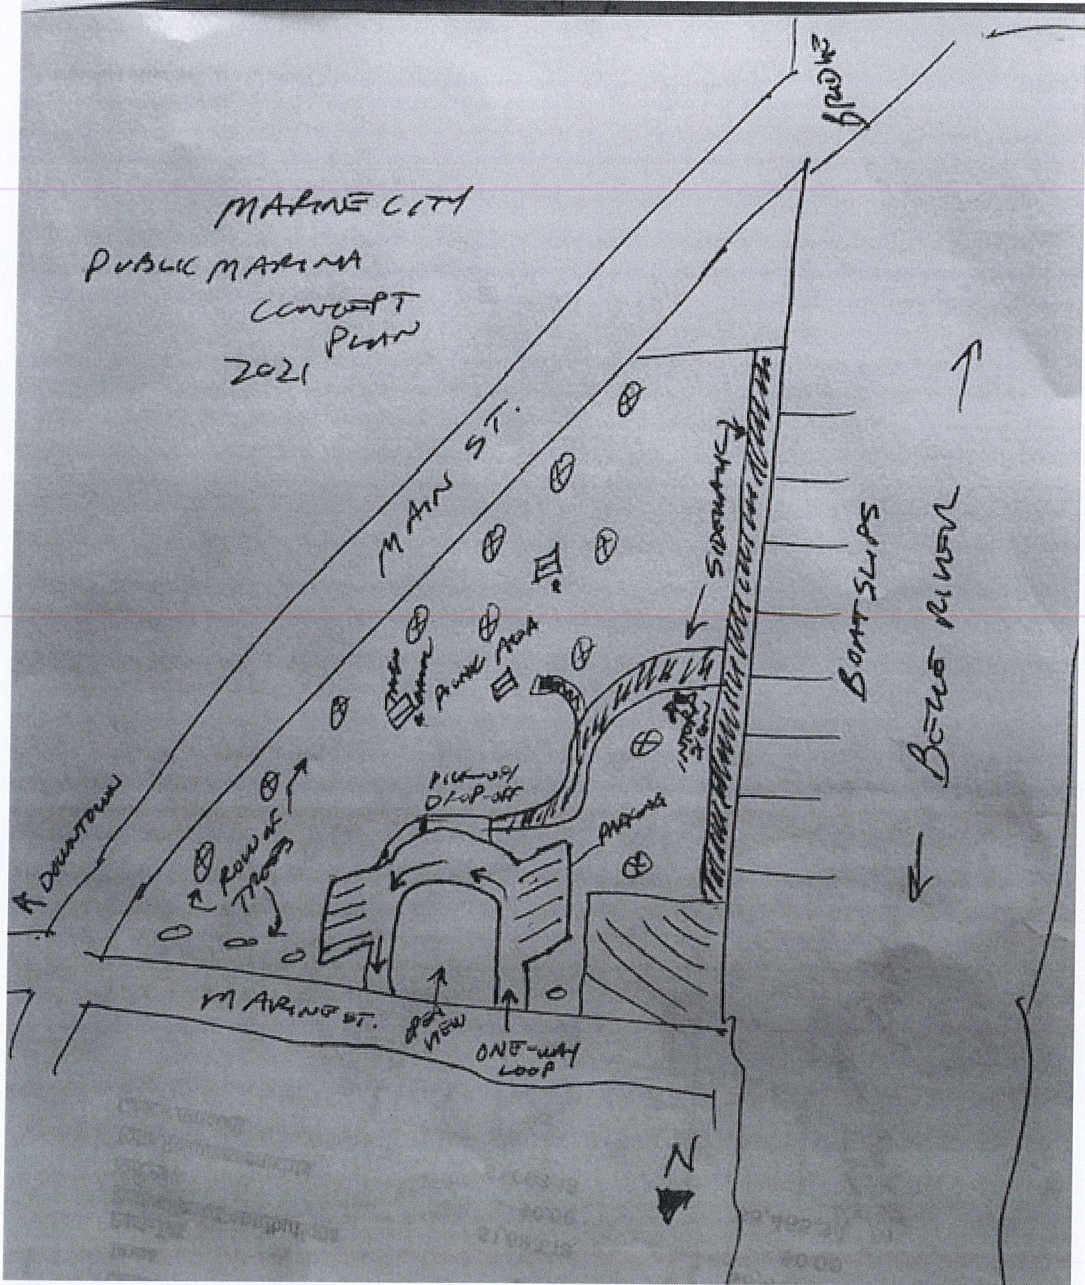 BRIDGE
MARINE CITY
PUBLIC MARINA
CONCEPT
PLAN
2021
MAIN ST.
SIDEWALK
BOAT SLIPS
BELLE RIVER
PICNIC AREA
PICK-UP/
DROP-OFF
PARKING
DOWNTOWN
ROW OF
TREES
MARINE ST.
VIEW
ONE-WAY
LOOP
N